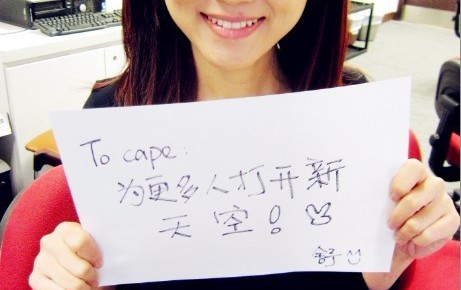 To cape:
为更多人打开新
天空！
舒